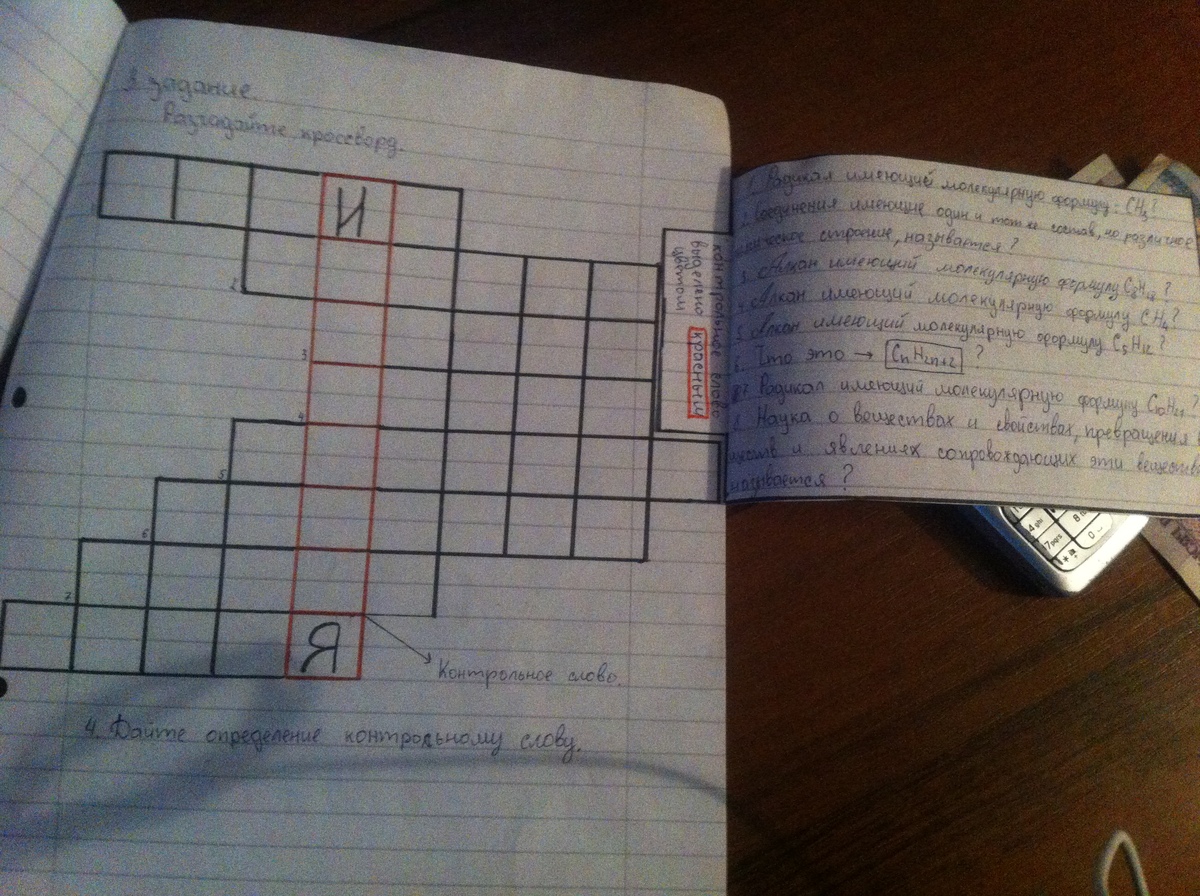 3. задание.
Разгадайте кроссворд.
И
2
3
4
5
6
7
Я
Контрольное слово.
4. Дайте определение контрольному слову.
контрольное слово
выделено красным
цветом
1. Радикал имеющий молекулярную формулу: CH3?
2. Соединения имеющие один и тот же состав, но различное
строение, называется?
3. Алкан имеющий молекулярную формулу C8H18?
4. Алкан имеющий молекулярную формулу CH4?
5. Алкан имеющий молекулярную формулу C5H12?
6. Что это → CnH2n+2 ?
7. Радикал имеющий молекулярную формулу C10H21?
8. Наука о веществах и свойствах, превращения
и явлениях сопровождающих эти
называется?
4 ghi
7 pqrs
8
0
*